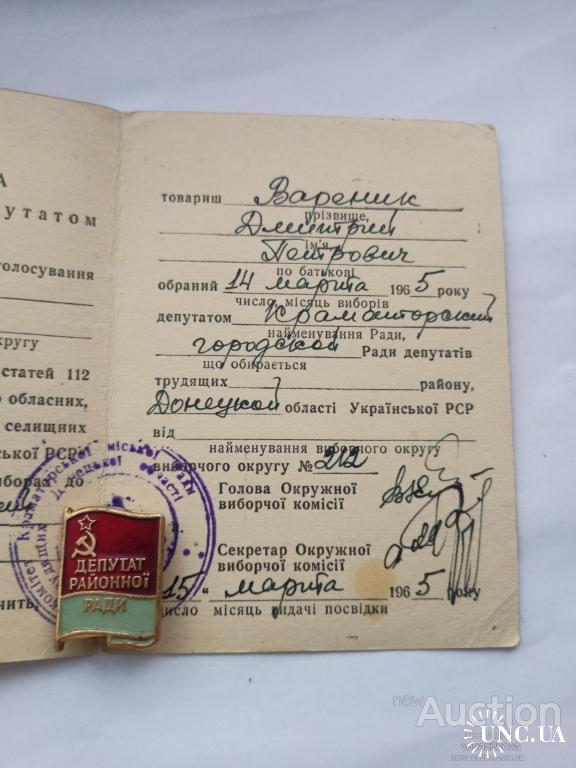 А
путатом
олосування
кругу
статей 112
о обласних,
селищних
ської РСР
борах до
чить.
товариш Вареник
прізвище,
Дмитрий
ім'я
Петрович
по батькові
обраний 14 марта 1965 року
число, місяць виборів
депутатом Краматорский
найменування Ради,
городской Ради депутатів
що обирається
трудящих району,
Донецкой області Української РСР
від
найменування виборчого округу
виборчого округу № 212
Голова Окружної
виборчої комісії
Секретар Окружної
виборчої комісії
15 " марта 1965 року
число місяць видачі посвідки
Краматорської міської Ради
Донецької області
ДЕПУТАТ
РАЙОННОЇ
РАДИ
new
Auction
UNC.UA